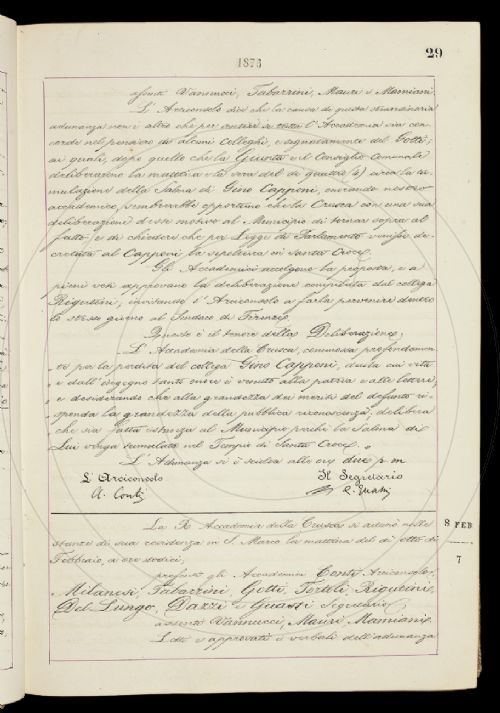 29
1876
assenti Vannucci, Tabarrini, Mauri e Mamiani.
L'Arciconsolo dice che la causa di questa straordinaria
adunanza non è altro che per sentire se tutta l'Accademia sia con-
corde nel pensiero di alcuni Colleghi, e segnatamente del Gotti;
ai quali, dopo quello che la Giunta e il Consiglio Comunale
deliberarono la mattina e la sera del dì quattro circa la tu-
mulazione della Salma di Gino Capponi, onorando nostro
accademico, sembrerebbe opportuno che la Crusca con una sua
deliberazione desse motivo al Municipio di tornar sopra al
fatto, e di chiedere che per Legge del Parlamento venisse de-
cretata al Capponi la sepoltura in Santa Croce.
Gli Accademici accolgono la proposta, e a
pieni voti approvano la deliberazione compilata dal collega
Rigutini, invitando l'Arciconsolo a farla pervenire dentro
lo stesso giorno al Sindaco di Firenze.
Questo è il tenore della Deliberazione:
"L'Accademia della Crusca, commossa profondamen-
"te per la perdita del collega Gino Capponi, dalla cui vita
"e dall'ingegno tanto onore è venuto alla patria e alle lettere;
"e desiderando che alla grandezza dei meriti del defunto ri-
"sponda la grandezza della pubblica riconoscenza; delibera
"che sia fatta istanza al Municipio perchè la Salma di
"Lui venga tumulata nel Tempio di Santa Croce."
L'Adunanza si è sciolta alle ore due p.m.
L'Arciconsolo Il Segretario
A. Conti
8 FEB
La R. Accademia della Crusca si adunò nelle
stanze di sua residenza in S. Marco la mattina del dì otto di
Febbraio a ore dodici,
7
presenti gli Accademici Conti Arciconsolo,
Milanesi, Tabarrini, Gotti, Tortoli, Rigutini,
Del Lungo, Dazzi e Guasti Segretario;
assenti Vannucci, Mauri, Mamiani.
Letti e approvati i verbali dell'adunanza